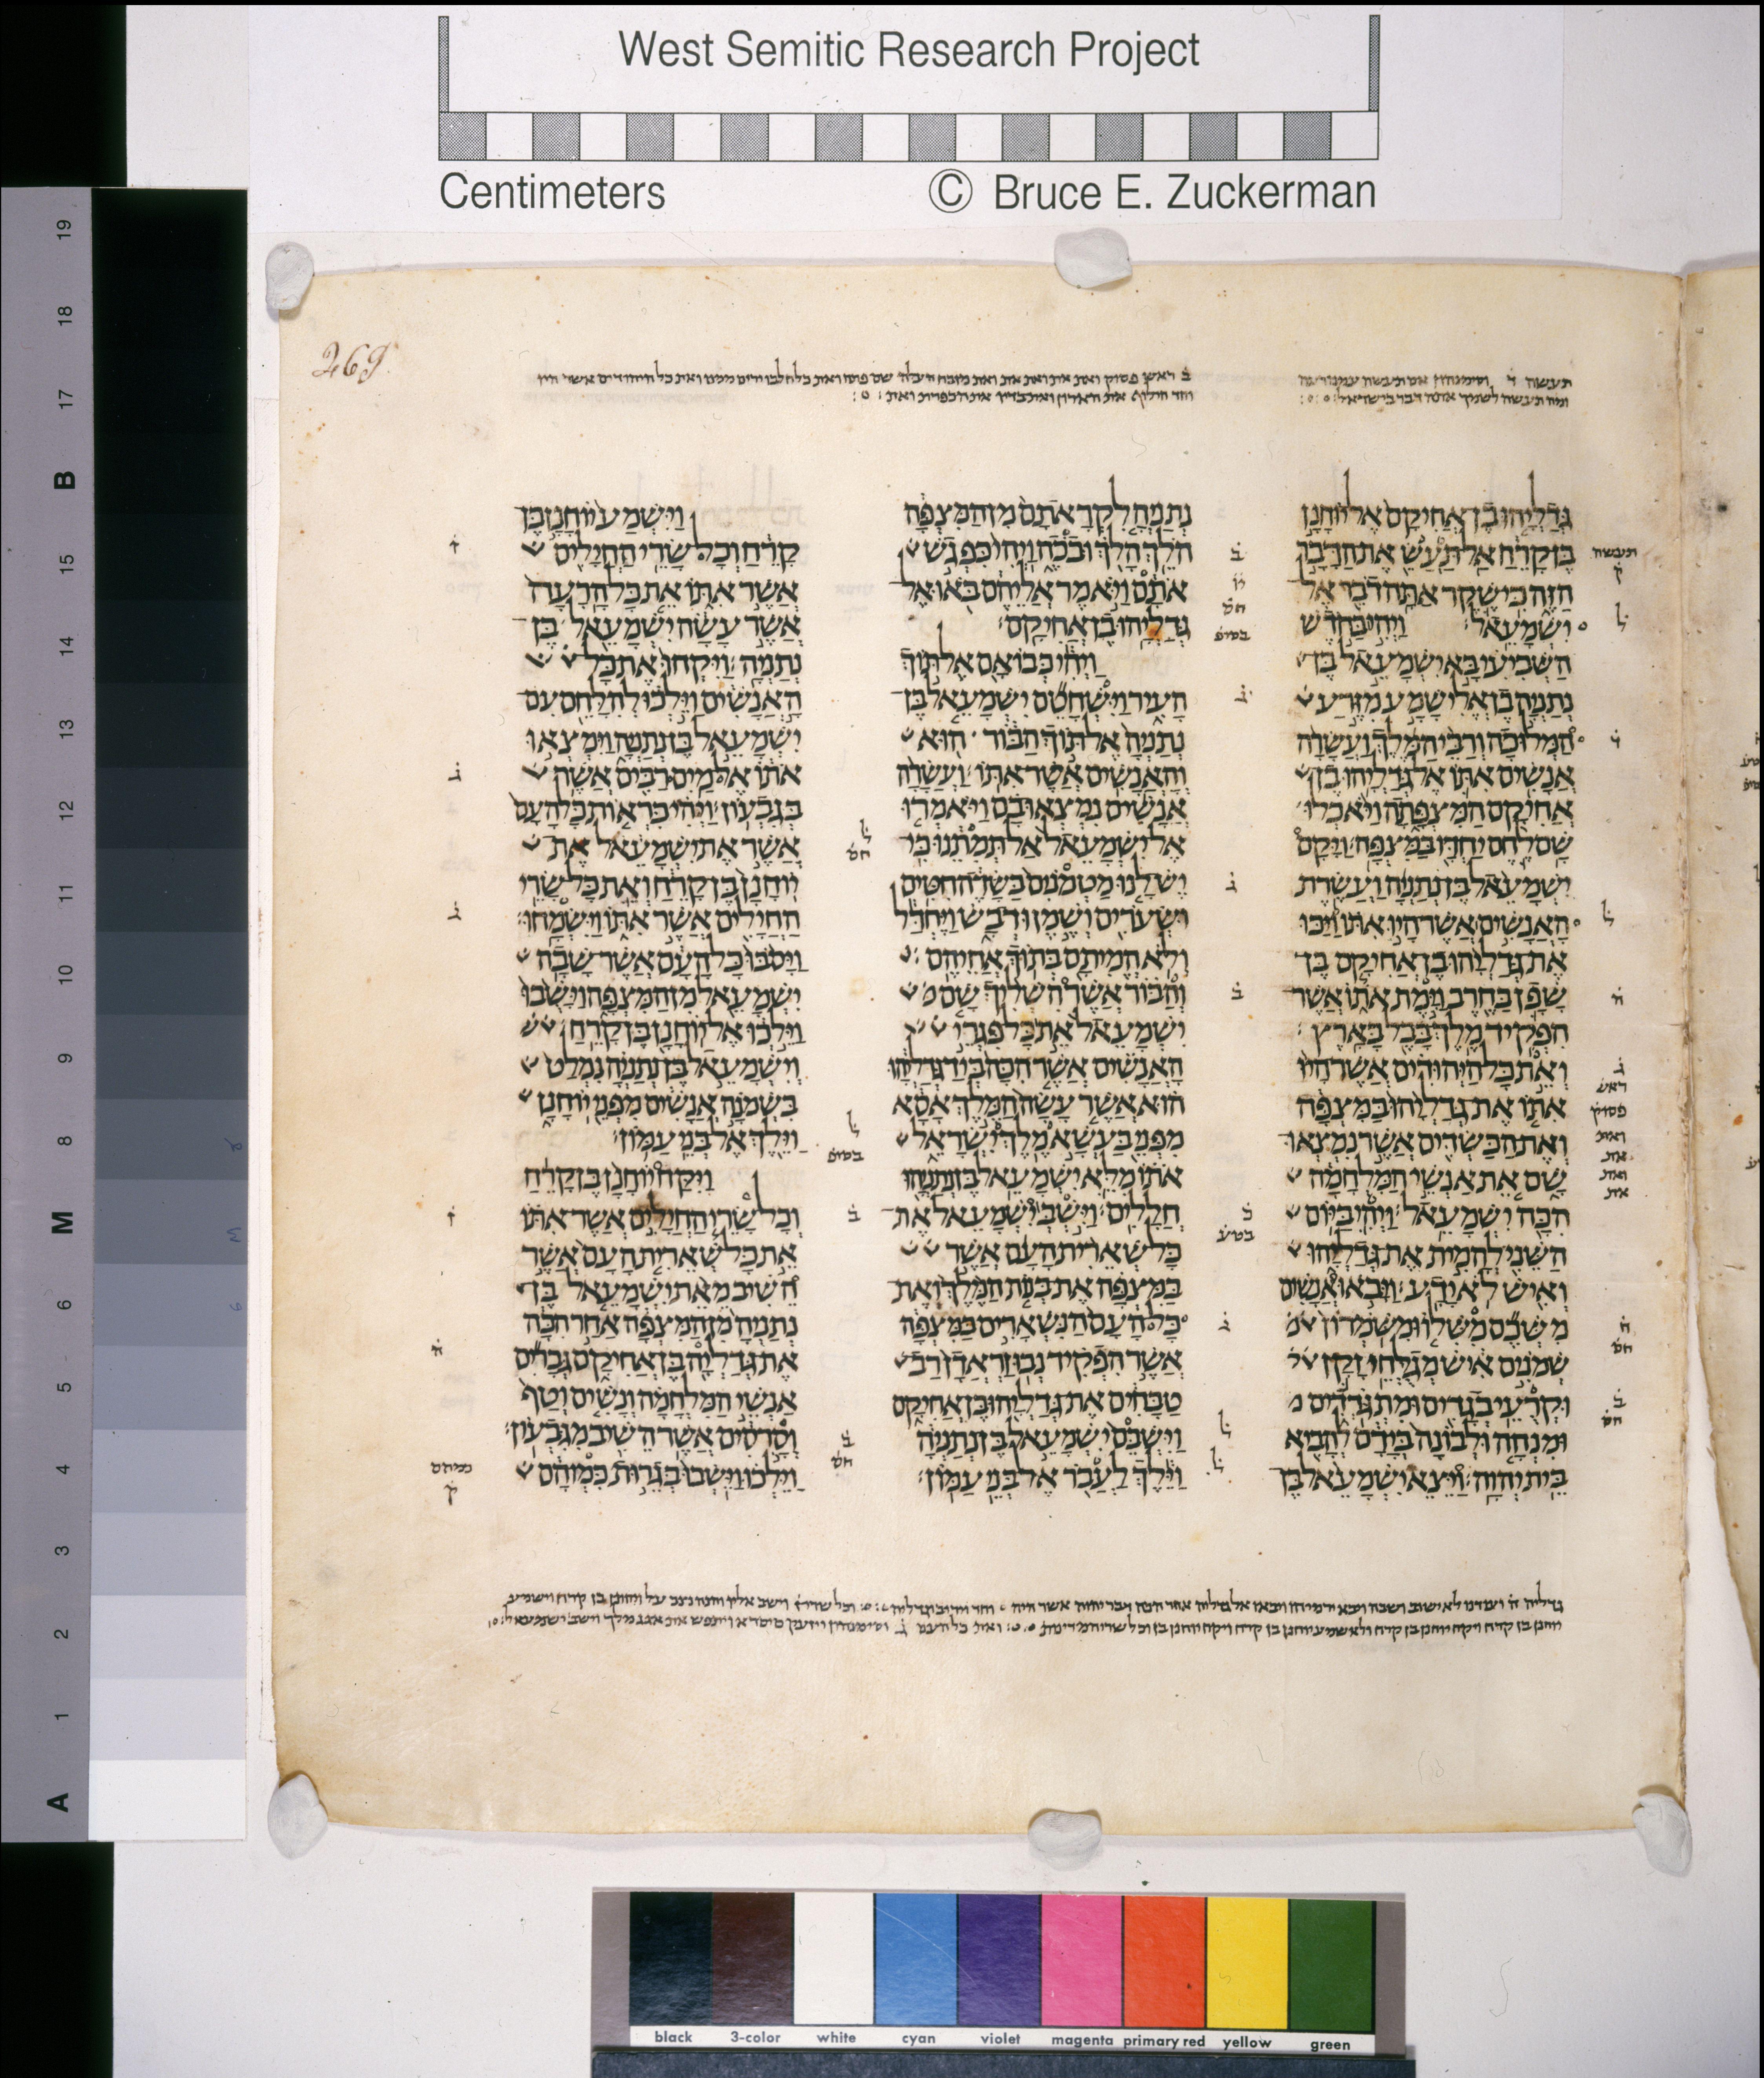 West Semitic Research Project
Centimeters
© Bruce E. Zuckerman
269
גְּדַלְיָהוּ בֶן אֲחִיקָם אֶל יוֹחָנָן
בֶּן קָרֵחַ אַל תַּעַשׂ אֶת הַדָּבָר
הַזֶּה כִּי שֶׁקֶר אַתָּה דֹבֵר אֶל
יִשְׁמָעֵאל׃ וַיְהִי בַּחֹדֶשׁ
הַשְּׁבִיעִי בָּא יִשְׁמָעֵאל בֶּן
נְתַנְיָה בֶן אֱלִישָׁמָע מִזֶּרַע
הַמְּלוּכָה וְרַבֵּי הַמֶּלֶךְ וַעֲשָׂרָה
אֲנָשִׁים אִתּוֹ אֶל גְּדַלְיָהוּ בֶן
אֲחִיקָם הַמִּצְפָּתָה וַיֹּאכְלוּ
שָׁם לֶחֶם יַחְדָּו בַּמִּצְפָּה׃ וַיָּקָם
יִשְׁמָעֵאל בֶּן נְתַנְיָה וַעֲשֶׂרֶת
הָאֲנָשִׁים אֲשֶׁר הָיוּ אִתּוֹ וַיַּכּוּ
אֶת גְּדַלְיָהוּ בֶן אֲחִיקָם בֶּן
שָׁפָן בַּחֶרֶב וַיָּמֶת אֹתוֹ אֲשֶׁר
הִפְקִיד מֶלֶךְ בָּבֶל בָּאָרֶץ׃
וְאֵת כָּל הַיְּהוּדִים אֲשֶׁר הָיוּ
אִתּוֹ אֶת גְּדַלְיָהוּ בַּמִּצְפָּה
וְאֶת הַכַּשְׂדִּים אֲשֶׁר נִמְצְאוּ
שָׁם אֵת אַנְשֵׁי הַמִּלְחָמָה
הִכָּה יִשְׁמָעֵאל׃ וַיְהִי בַּיּוֹם
הַשֵּׁנִי לְהָמִית אֶת גְּדַלְיָהוּ
וְאִישׁ לֹא יָדָע׃ וַיָּבֹאוּ אֲנָשִׁים
מִשְּׁכֶם מִשִּׁלוֹ וּמִשֹּׁמְרוֹן
שְׁמֹנִים אִישׁ מְגֻלְּחֵי זָקָן
וּקְרֻעֵי בְגָדִים וּמִתְגֹּדְדִים
וּמִנְחָה וּלְבוֹנָה בְּיָדָם לְהָבִיא
בֵּית יְהוָה׃ וַיֵּצֵא יִשְׁמָעֵאל בֶּן
נְתַנְיָה לִקְרָאתָם מִן הַמִּצְפָּה
הֹלֵךְ הָלֹךְ וּבֹכֶה וַיְהִי כִּפְגֹשׁ
אֹתָם וַיֹּאמֶר אֲלֵיהֶם בֹּאוּ אֶל
גְּדַלְיָהוּ בֶן אֲחִיקָם׃
וַיְהִי כְּבוֹאָם אֶל תּוֹךְ
הָעִיר וַיִּשְׁחָטֵם יִשְׁמָעֵאל בֶּן
נְתַנְיָה אֶל תּוֹךְ הַבּוֹר הוּא
וְהָאֲנָשִׁים אֲשֶׁר אִתּוֹ׃ וַעֲשָׂרָה
אֲנָשִׁים נִמְצְאוּ בָם וַיֹּאמְרוּ
אֶל יִשְׁמָעֵאל אַל תְּמִתֵנוּ כִּי
יֶשׁ לָנוּ מַטְמֹנִים בַּשָּׂדֶה חִטִּים
וּשְׂעֹרִים וְשֶׁמֶן וּדְבָשׁ וַיֶּחְדַּל
וְלֹא הֱמִיתָם בְּתוֹךְ אֲחֵיהֶם׃
וְהַבּוֹר אֲשֶׁר הִשְׁלִיךְ שָׁם
יִשְׁמָעֵאל אֵת כָּל פִּגְרֵי
הָאֲנָשִׁים אֲשֶׁר הִכָּה בְּיַד גְּדַלְיָהוּ
הוּא אֲשֶׁר עָשָׂה הַמֶּלֶךְ אָסָא
מִפְּנֵי בַּעְשָׁא מֶלֶךְ יִשְׂרָאֵל
אֹתוֹ מִלֵּא יִשְׁמָעֵאל בֶּן נְתַנְיָהוּ
חֲלָלִים׃ וַיִּשְׁבְּ יִשְׁמָעֵאל אֶת
כָּל שְׁאֵרִית הָעָם אֲשֶׁר
בַּמִּצְפָּה אֶת בְּנוֹת הַמֶּלֶךְ וְאֶת
כָּל הָעָם הַנִּשְׁאָרִים בַּמִּצְפָּה
אֲשֶׁר הִפְקִיד נְבוּזַרְאֲדָן רַב
טַבָּחִים אֶת גְּדַלְיָהוּ בֶּן אֲחִיקָם
וַיִּשְׁבֵּם יִשְׁמָעֵאל בֶּן נְתַנְיָה
וַיֵּלֶךְ לַעֲבֹר אֶל בְּנֵי עַמּוֹן׃
וַיִּשְׁמַע יוֹחָנָן בֶּן
קָרֵחַ וְכָל שָׂרֵי הַחֲיָלִים
אֲשֶׁר אִתּוֹ אֵת כָּל הָרָעָה
אֲשֶׁר עָשָׂה יִשְׁמָעֵאל בֶּן
נְתַנְיָה׃ וַיִּקְחוּ אֶת כָּל
הָאֲנָשִׁים וַיֵּלְכוּ לְהִלָּחֵם עִם
יִשְׁמָעֵאל בֶּן נְתַנְיָה וַיִּמְצְאוּ
אֹתוֹ אֶל מַיִם רַבִּים אֲשֶׁר
בְּגִבְעוֹן׃ וַיְהִי כִּרְאוֹת כָּל הָעָם
אֲשֶׁר אֶת יִשְׁמָעֵאל אֶת
יוֹחָנָן בֶּן קָרֵחַ וְאֵת כָּל שָׂרֵי
הַחֲיָלִים אֲשֶׁר אִתּוֹ וַיִּשְׂמָחוּ׃
וַיָּסֹבּוּ כָּל הָעָם אֲשֶׁר שָׁבָה
יִשְׁמָעֵאל מִן הַמִּצְפָּה וַיָּשֻׁבוּ
וַיֵּלְכוּ אֶל יוֹחָנָן בֶּן קָרֵחַ׃
וְיִשְׁמָעֵאל בֶּן נְתַנְיָה נִמְלַט
בִּשְׁמֹנָה אֲנָשִׁים מִפְּנֵי יוֹחָנָן
וַיֵּלֶךְ אֶל בְּנֵי עַמּוֹן׃
וַיִּקַּח יוֹחָנָן בֶּן קָרֵחַ
וְכָל שָׂרֵי הַחֲיָלִים אֲשֶׁר אִתּוֹ
אֵת כָּל שְׁאֵרִית הָעָם אֲשֶׁר
הֵשִׁיב מֵאֵת יִשְׁמָעֵאל בֶּן
נְתַנְיָה מִן הַמִּצְפָּה אַחַר הִכָּה
אֶת גְּדַלְיָה בֶּן אֲחִיקָם גְּבָרִים
אַנְשֵׁי הַמִּלְחָמָה וְנָשִׁים וְטַף
וְסָרִסִים אֲשֶׁר הֵשִׁיב מִגִּבְעוֹן׃
וַיֵּלְכוּ וַיֵּשְׁבוּ בְּגֵרוּת כְּמוֹהָם
19
18
17
B
15
14
13
12
11
10
9
8
M
6
5
4
3
2
1
A
black
3-color
white
cyan
violet
magenta
primary red
yellow
green